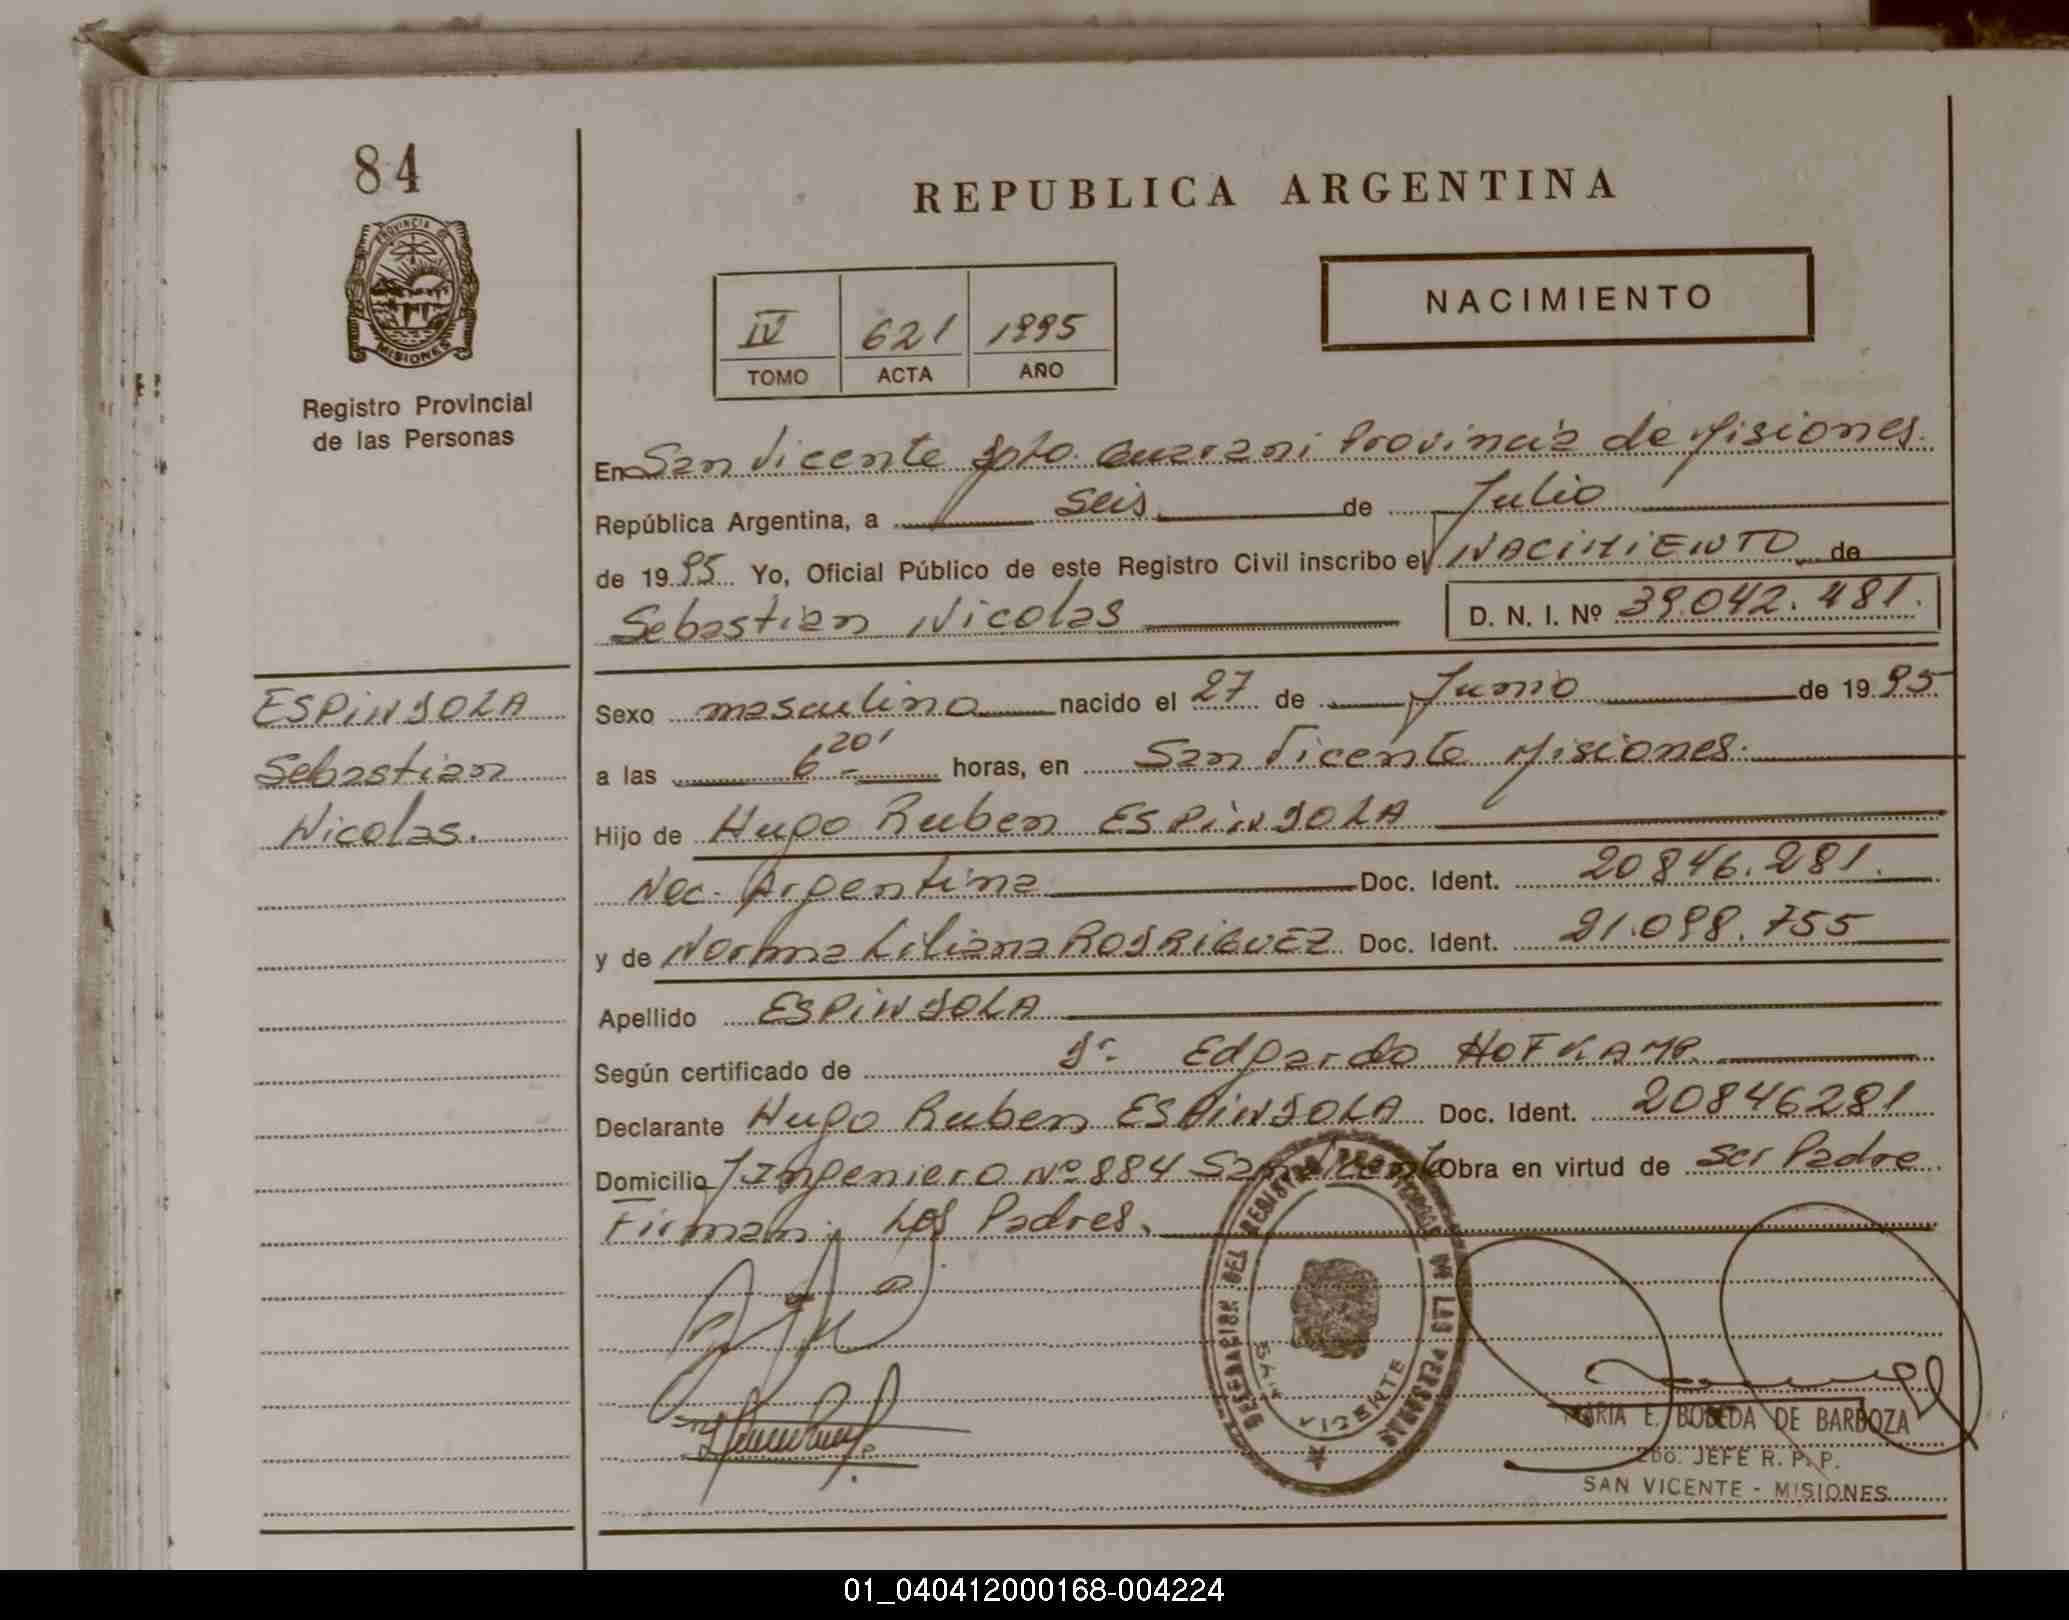 84
REPUBLICA ARGENTINA
PROVINCIA DE
MISIONES
Registro Provincial
de las Personas
NACIMIENTO
IV 621 1995
TOMO ACTA AÑO
En San Vicente Dpto. Guarani Provincia de Misiones.
República Argentina, a seis de Julio
de 1995 Yo, Oficial Público de este Registro Civil inscribo el NACIMIENTO de
Sebastian Nicolas D. N. I. Nº 39.042.481.
ESPINDOLA
Sebastian
Nicolas.
Sexo masculino nacido el 27 de Junio de 1995
a las 6 20' horas, en San Vicente Misiones.
Hijo de Hugo Ruben ESPINDOLA
Nac. Argentina Doc. Ident. 20846.281.
y de Norma Liliana RODRIGUEZ Doc. Ident. 21.098.755
Apellido ESPINDOLA
Según certificado de Dr. Edgardo HOFKAMP.
Declarante Hugo Ruben ESPINDOLA Doc. Ident. 20846281
Domicilio Ingeniero Nº 884 San Vicente Obra en virtud de ser Padre
Firman: Los Padres.
DELEGACION DEL REGISTRO PROVINCIAL DE LAS PERSONAS
SAN VICENTE
MARIA E. BOBEDA DE BARBOZA
2DO. JEFE R. P. P.
SAN VICENTE - MISIONES
01_040412000168-004224